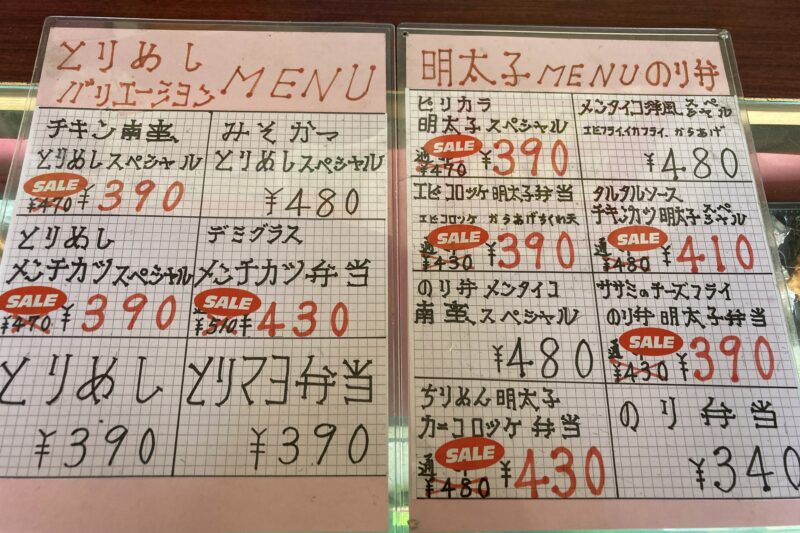 とりめし
バリエーション MENU
チキン南蛮、
とりめしスペシャル
SALE
¥470 ¥390
みそカツ
とりめしスペシャル
¥480
とりめし
メンチカツスペシャル
SALE
¥470 ¥390
デミグラス
メンチカツ弁当
SALE
¥510 ¥430
とりめし
¥390
とりマヨ弁当
¥390
明太子 MENU のり弁
ピリカラ
明太子スペシャル
SALE
¥470 ¥390
メンタイコ南風スペシャル
エビフライ イカフライ、からあげ
¥480
エビコロッケ明太子弁当
エビコロッケ からあげちくわ天
SALE
通 ¥430 ¥390
タルタルソース
チキンカツ明太子スペシャル
通 SALE
¥480 ¥410
のり弁メンタイコ
南蛮、スペシャル
¥480
ササミのチーズフライ
のり弁明太子弁当
通 SALE
¥430 ¥390
ちりめん明太子
カニコロッケ弁当
通 SALE
¥480 ¥430
のり弁当
¥340